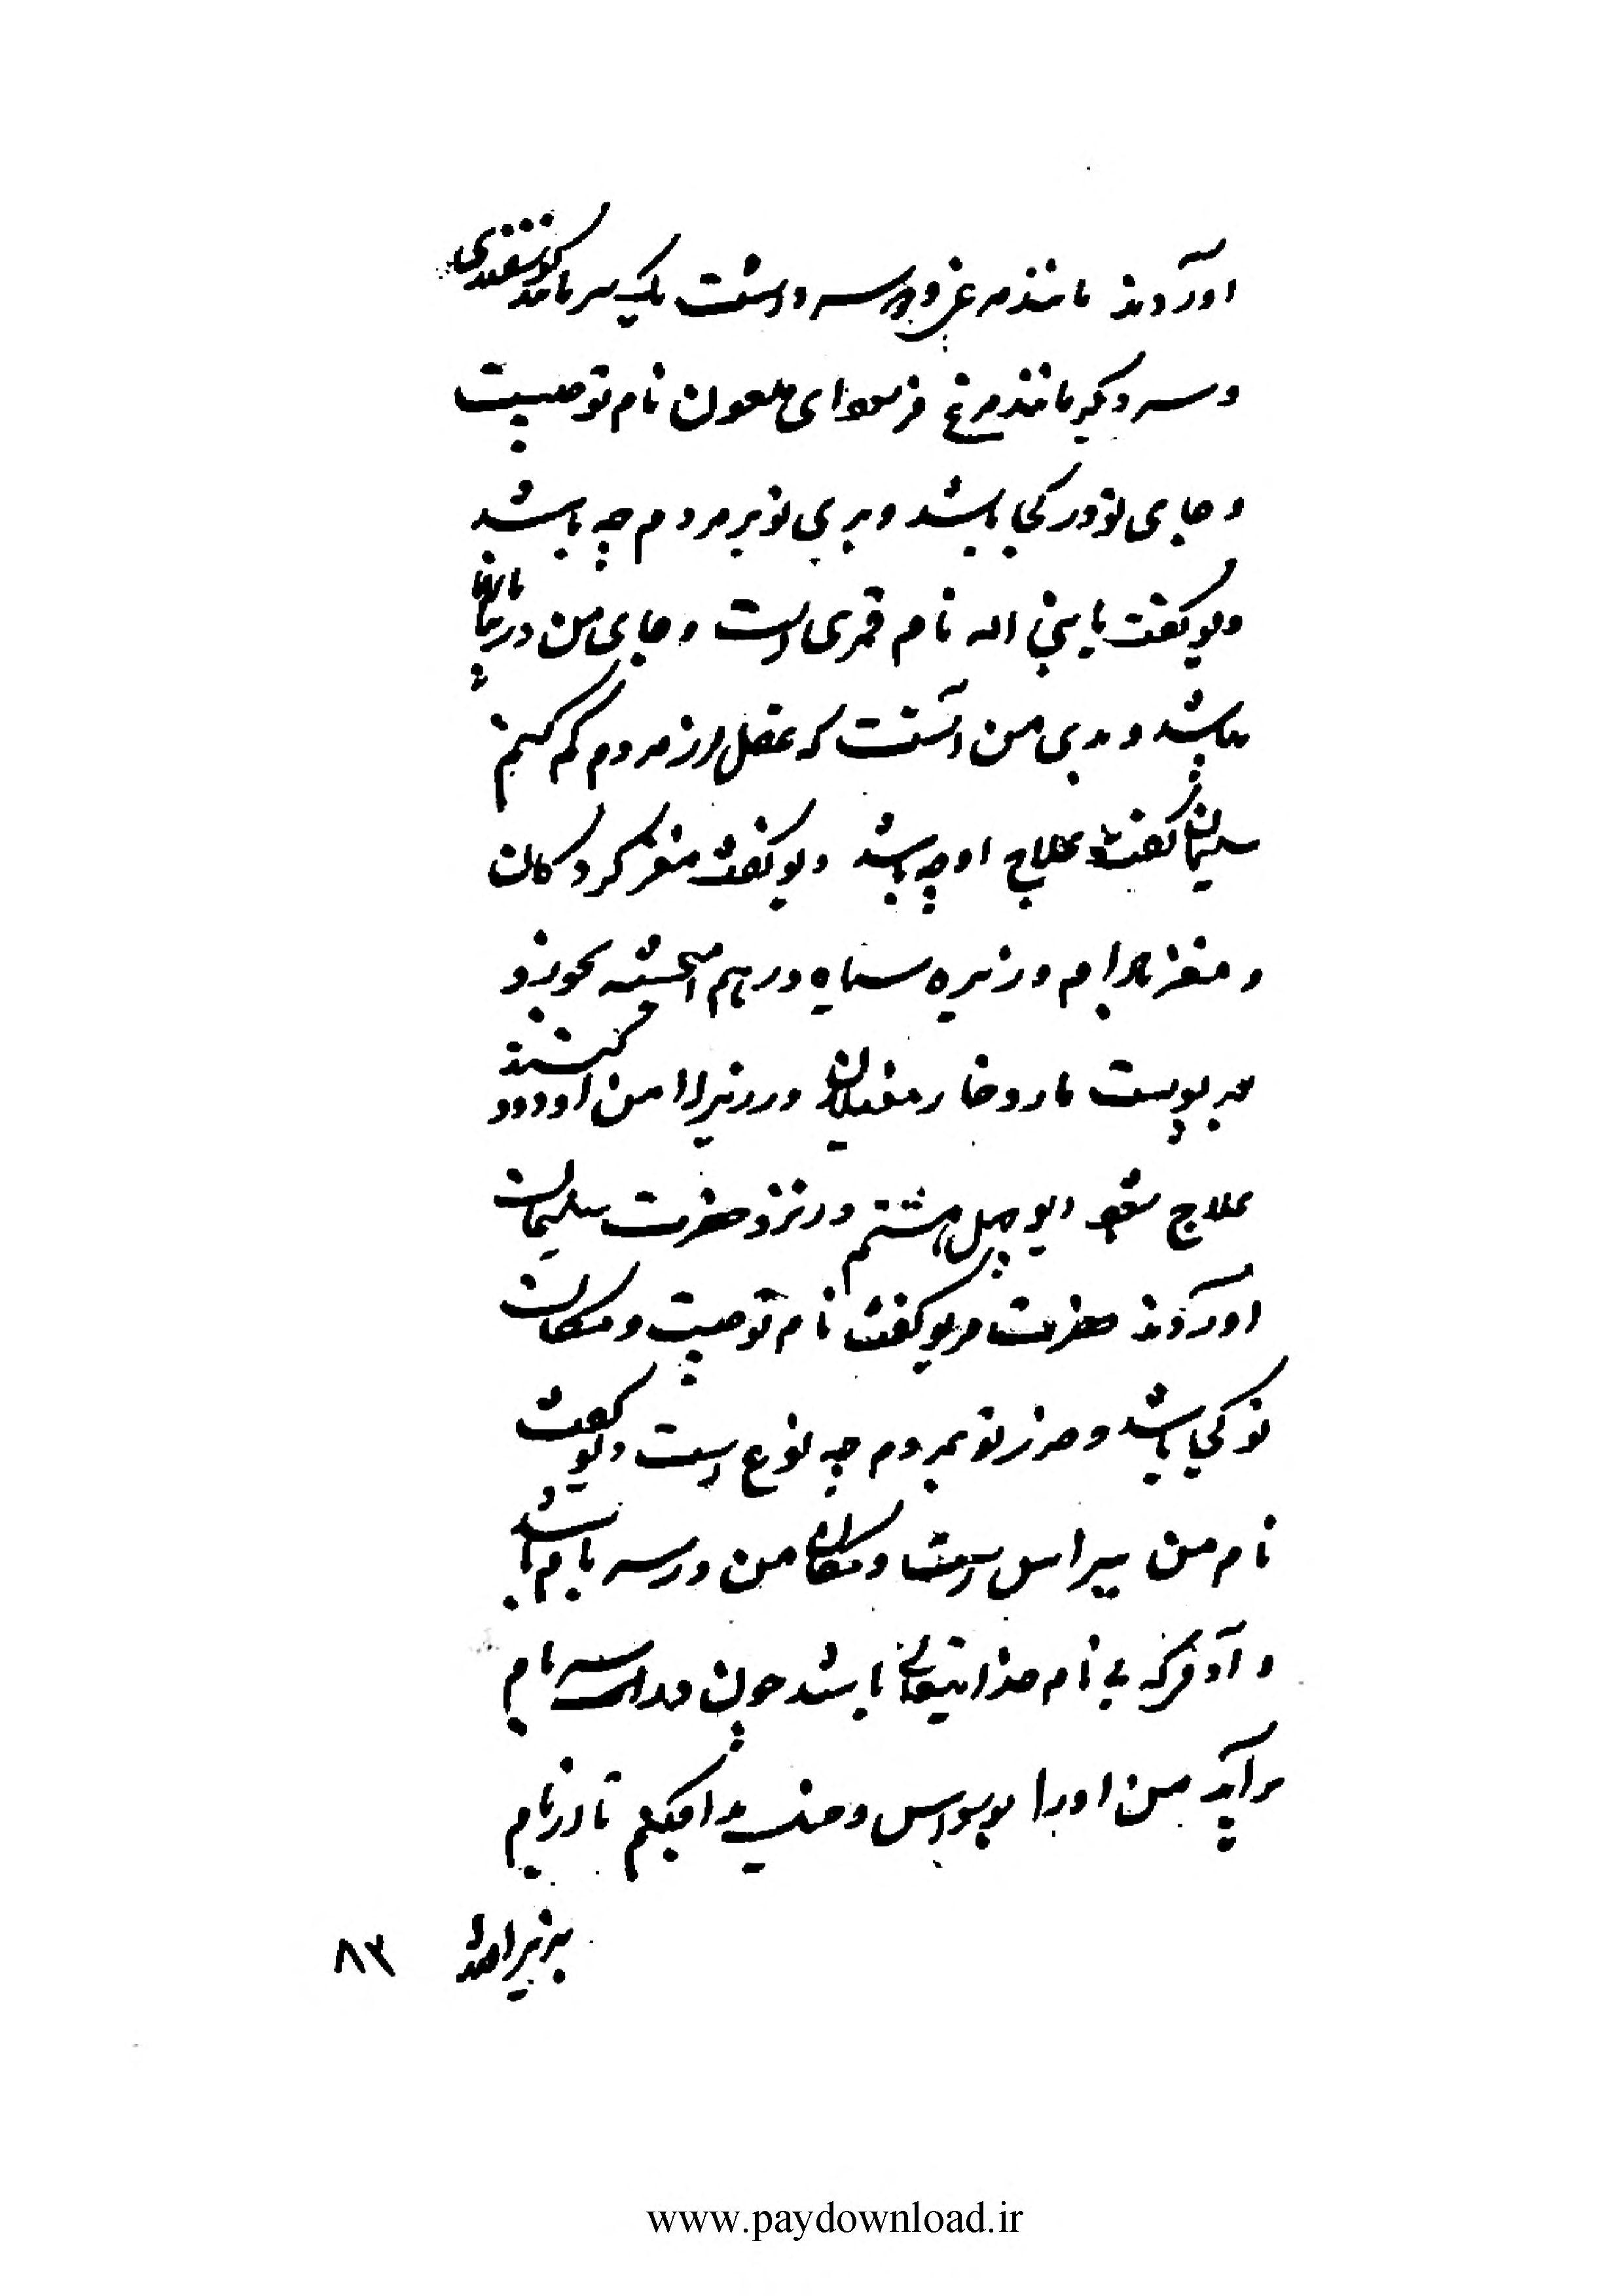 اوردند مانند مرغ و دو سر داشت یک سر مانند گوسفندی
و سر دیگر مانند مرغ فرمود ای ملعون نام تو چیست
و جای تو در کجا باشد و بدی تو بر مردم چه باشد
دیو گفت یا نبی اله نام قمری است و جای من در بیابانها
باشد و بدی من آنست که عقل از مردم کم کنم
سلیمان گفت علاج او چه باشد دیو گفت مغز گردکان
و مغز بادام و زیره سیاه در هم امیخته بخورند و
به پوست مار و خار مغیلان در زیر دامن او دود کنند
علاج شود دیو چهل هشتم در نزد حضرت سلیمان
اوردند حضرت مر دیو گفت نام تو چیست و مکان
تو کجا باشد و ضرر تو بمردم چه نوع است دیو گفت
نام من سراس است و مکان من در سر بام باشد
و آدم که بی نام خدایتعالی باشد چون در سر بام
برآید من او را بوسواس و می اندازم تا از بام
بزیر افتد
۸۲
www.paydownload.ir